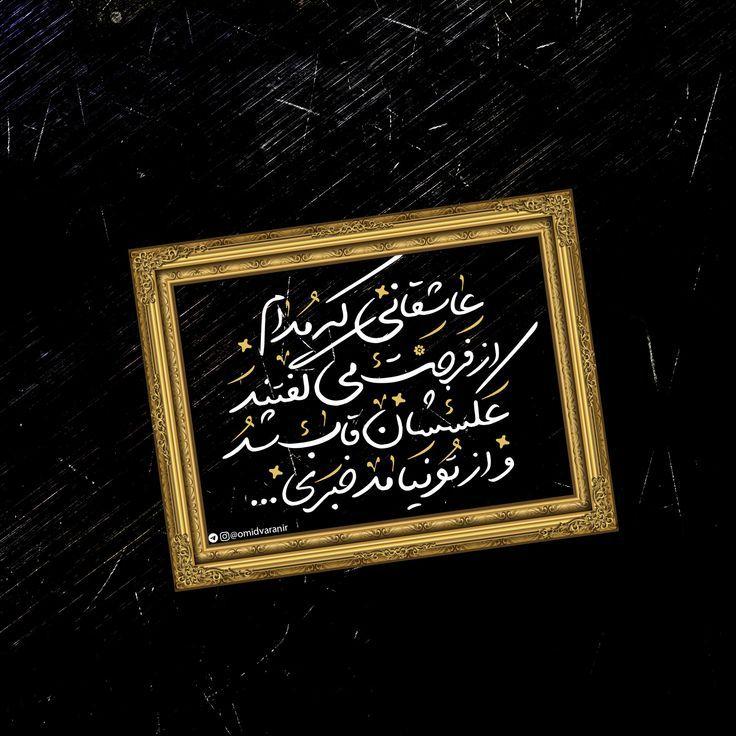 عاشقانی که مُدام
از فَرَجَت می گفتند
عَکسشان قاب شُد
و از تُو نیامد خَبَری ...
@omidvaranir